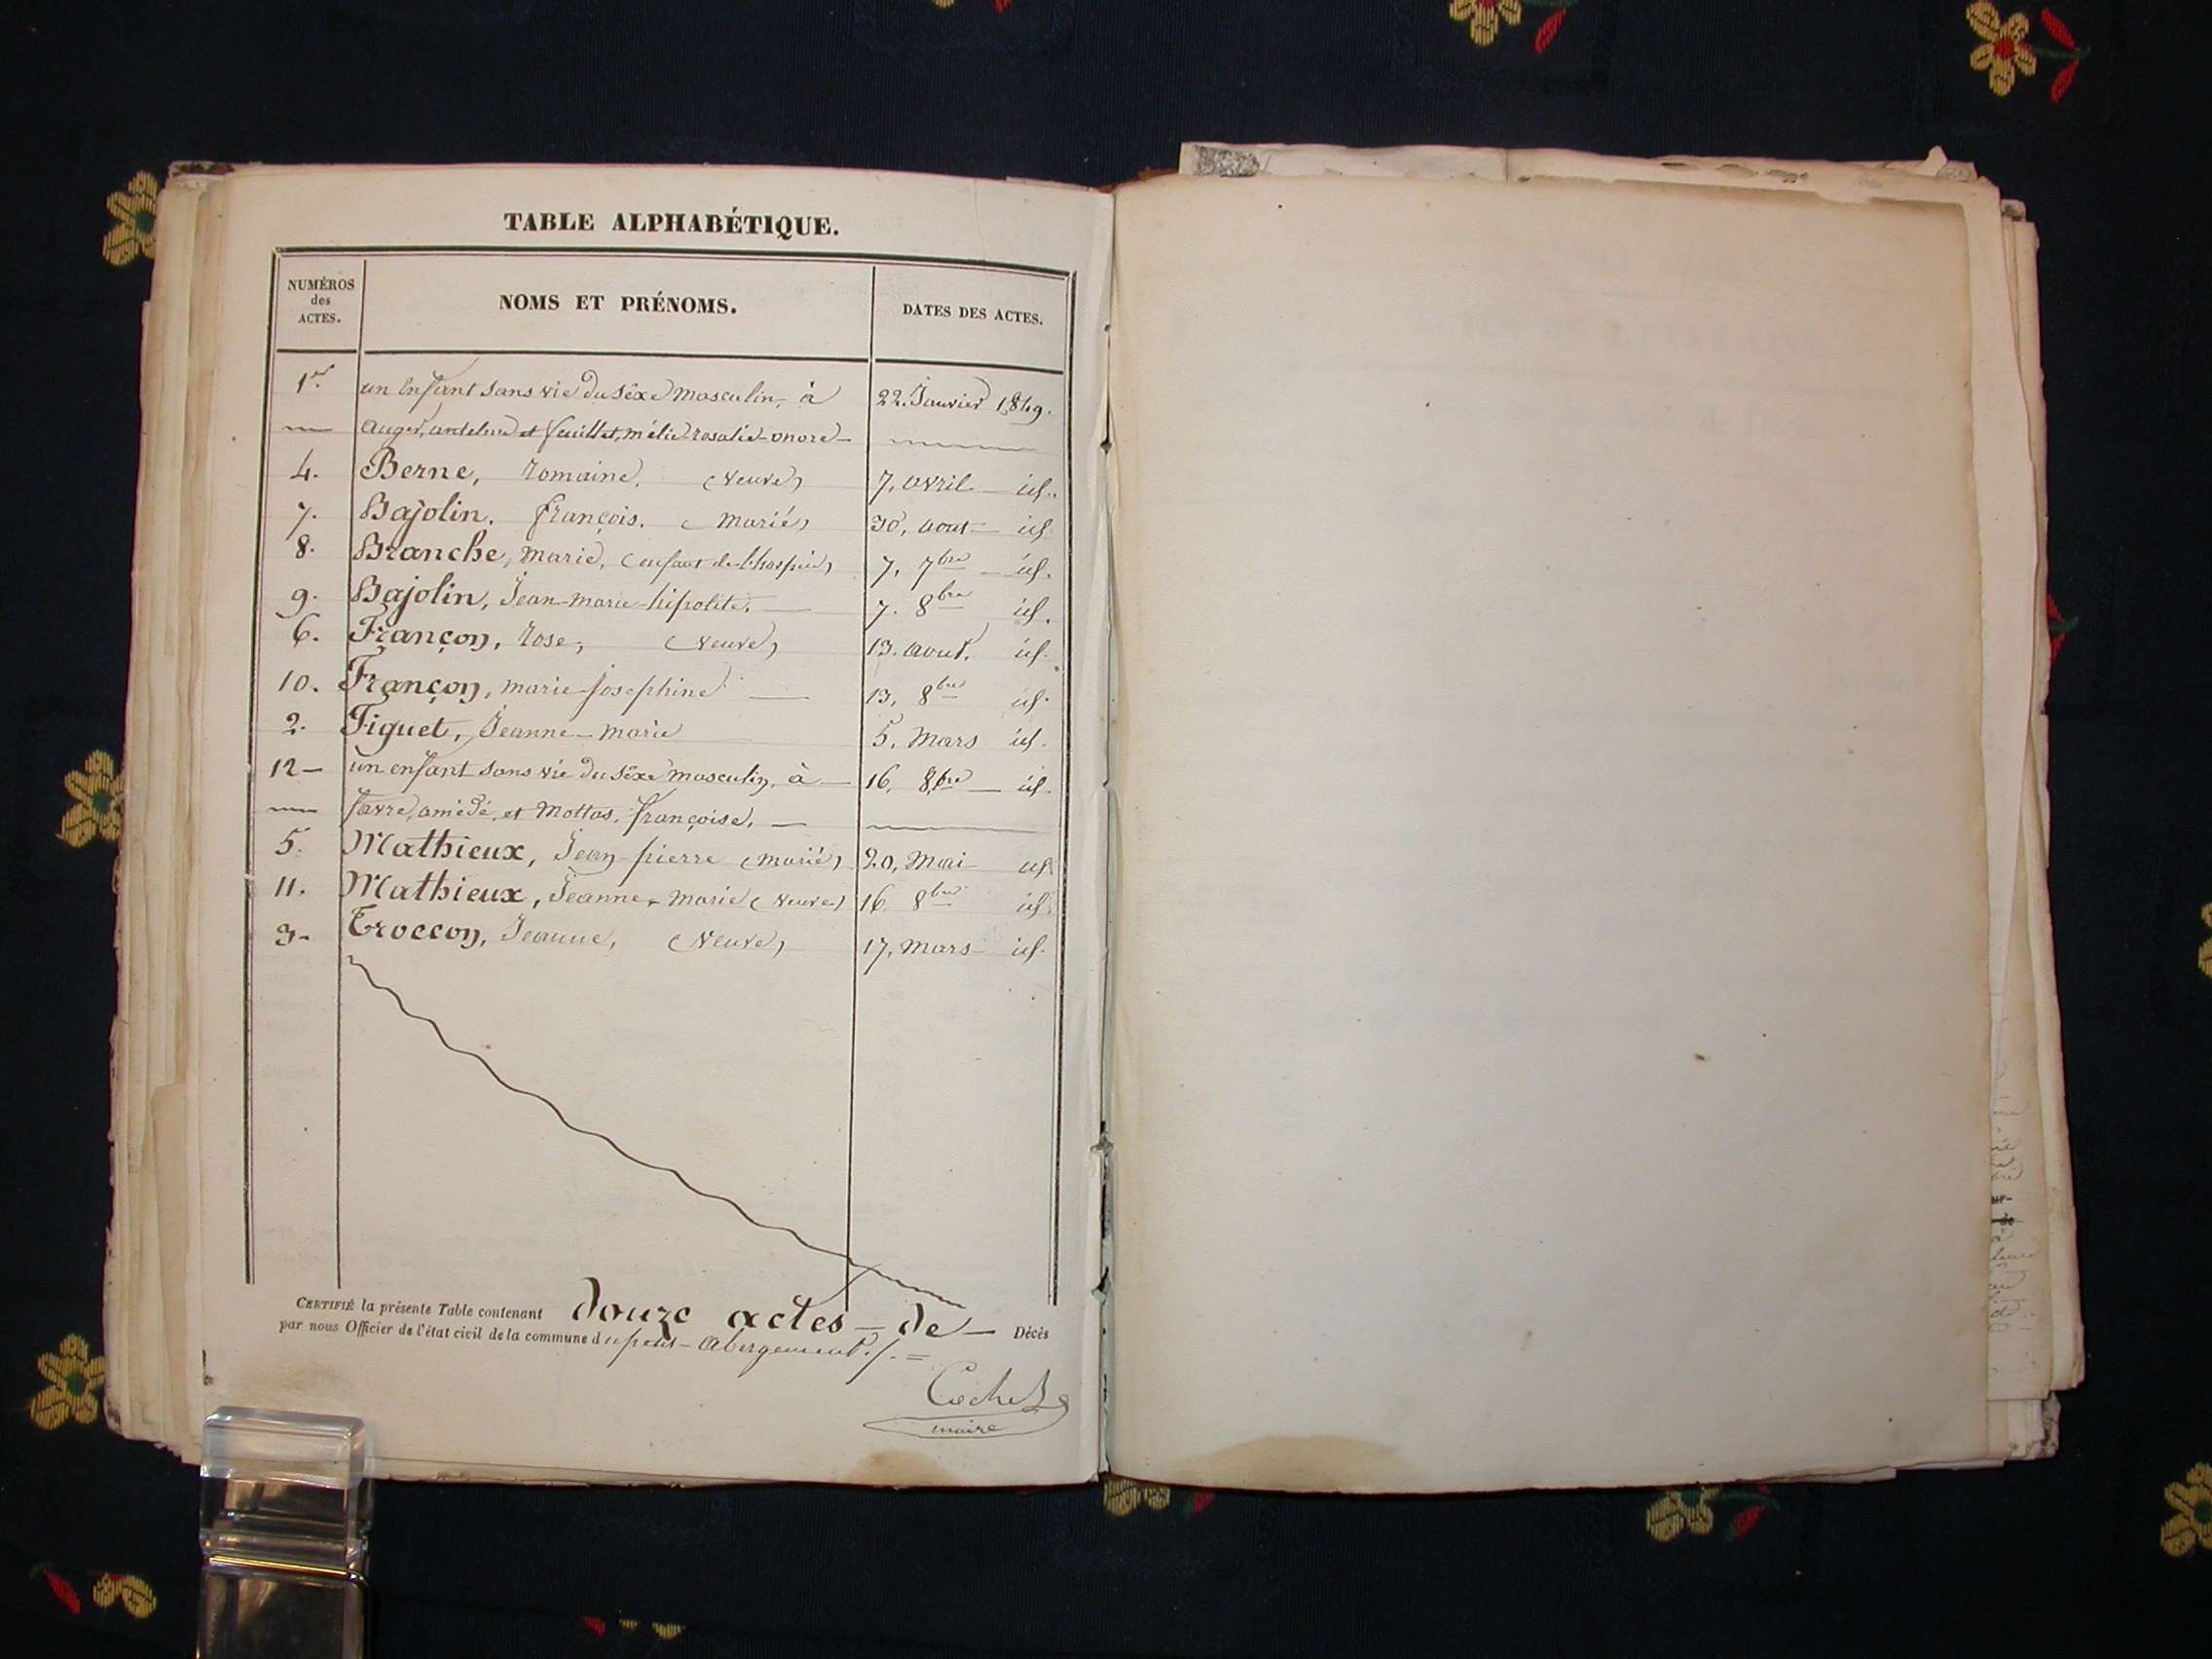 TABLE ALPHABÉTIQUE.
NUMÉROS des ACTES. NOMS ET PRÉNOMS. DATES DES ACTES.
1er. un enfant sans vie du séxe masculin, à 22. Janvier 1849.
Auger, antelme et feuillet, mélie-rosalie-onore
4. Berne, romaine, (veuve) 7, avril id.
7. Bajolin, françois. (marié) 30, aout id.
8. Branche, marie, (enfant de l'hospice) 7, 7bre id.
9. Bajolin, Jean-marie-hipolite. 7. 8bre id.
6. Françon, rose, (veuve) 13. aout. id.
10. Françon, marie-josephine 13, 8bre id.
2. Figuet, Jeanne-marie 5, Mars id.
12 un enfant sans vie du séxe masculin, à 16, 8bre id.
favre, amédé, et Mottas, françoise.
5. Mathieux, Jean-pierre (marié) 20, Mai id
11. Mathieux, Jeanne-marie (veuve) 16 8bre id
3 Troccon, Jeanne, (veuve) 17, Mars id.
CERTIFIÉ la présente Table contenant douze actes de Décès
par nous Officier de l'état civil de la commune du petit-abergement./.=
Cochet
maire